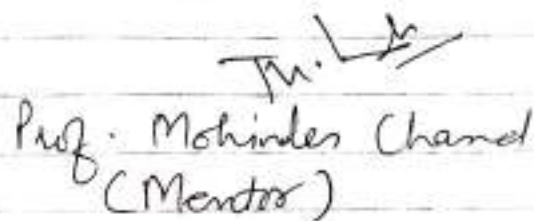 Prof. Mohinder Chand
(Mentor)